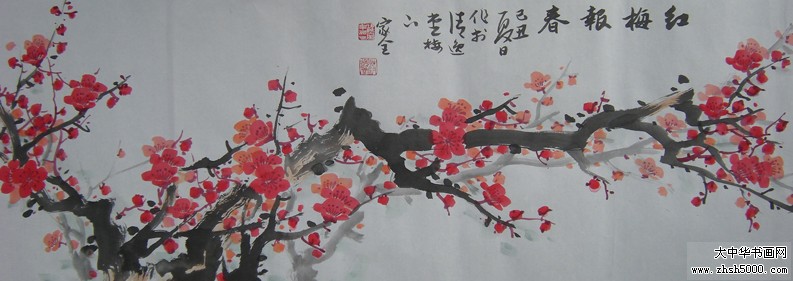 红梅報春
己丑
夏日
作於
清逸
堂梅
家全
大中华书画网
www.zhsh5000.com